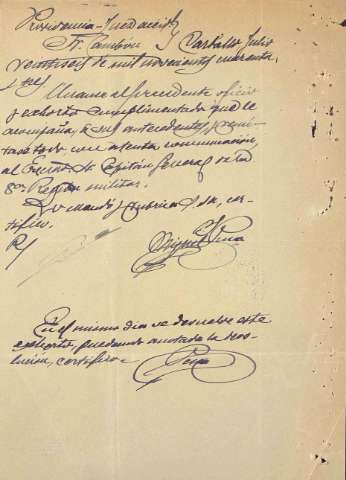 Providencia-Juez accidl.}
Sr. Cambón } Carballo Julio
veintiseis de mil novecientos cuarenta
y tres
Unase el precedente oficio
y exhorto cumplimentado que se
acompaña, a sus antecedentes, y remi-
tase todo con atenta comunicación,
al Excmo. Sr. Capitán General de la
8ª Región militar.
Lo mandó y rubrica S.Sª., cer-
tifico.
R/
Miguel Pena
En el mismo dia se devuelve este
exhorto, quedando anotada la reso-
lución, certifico.
Pena